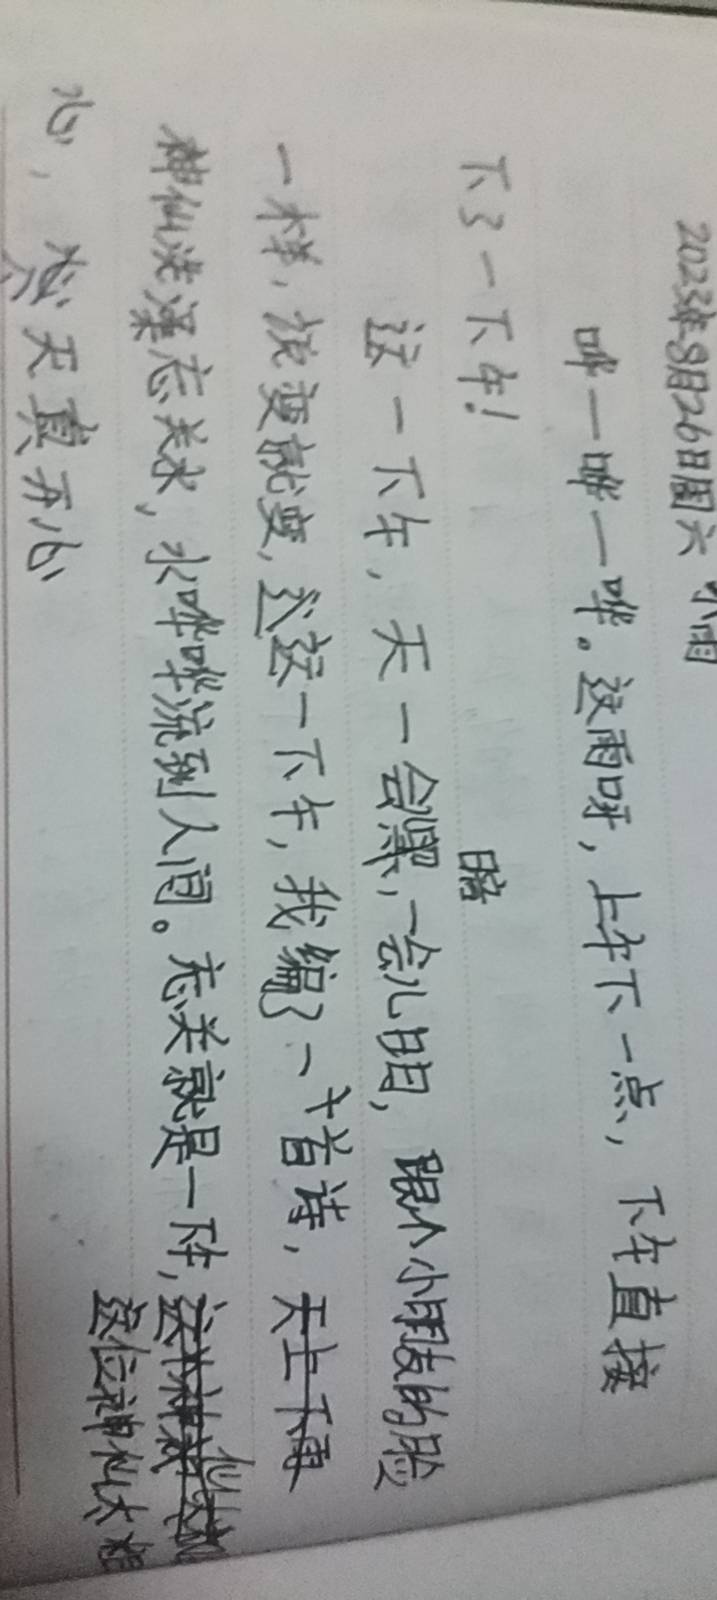 2023年8月26日周六 小雨
哗一哗一哗。这雨呀，上午下一点，下午直接
下了一下午！
暗
这一下午，天一会黑，一会儿明，跟个小朋友的脸
一样，说变就变，这一下午，我编了一首诗，天上下雨
神仙洗澡忘关水，水哗哗流到人间。忘关就是一阵，
这位神仙太粗
心，今天真开心